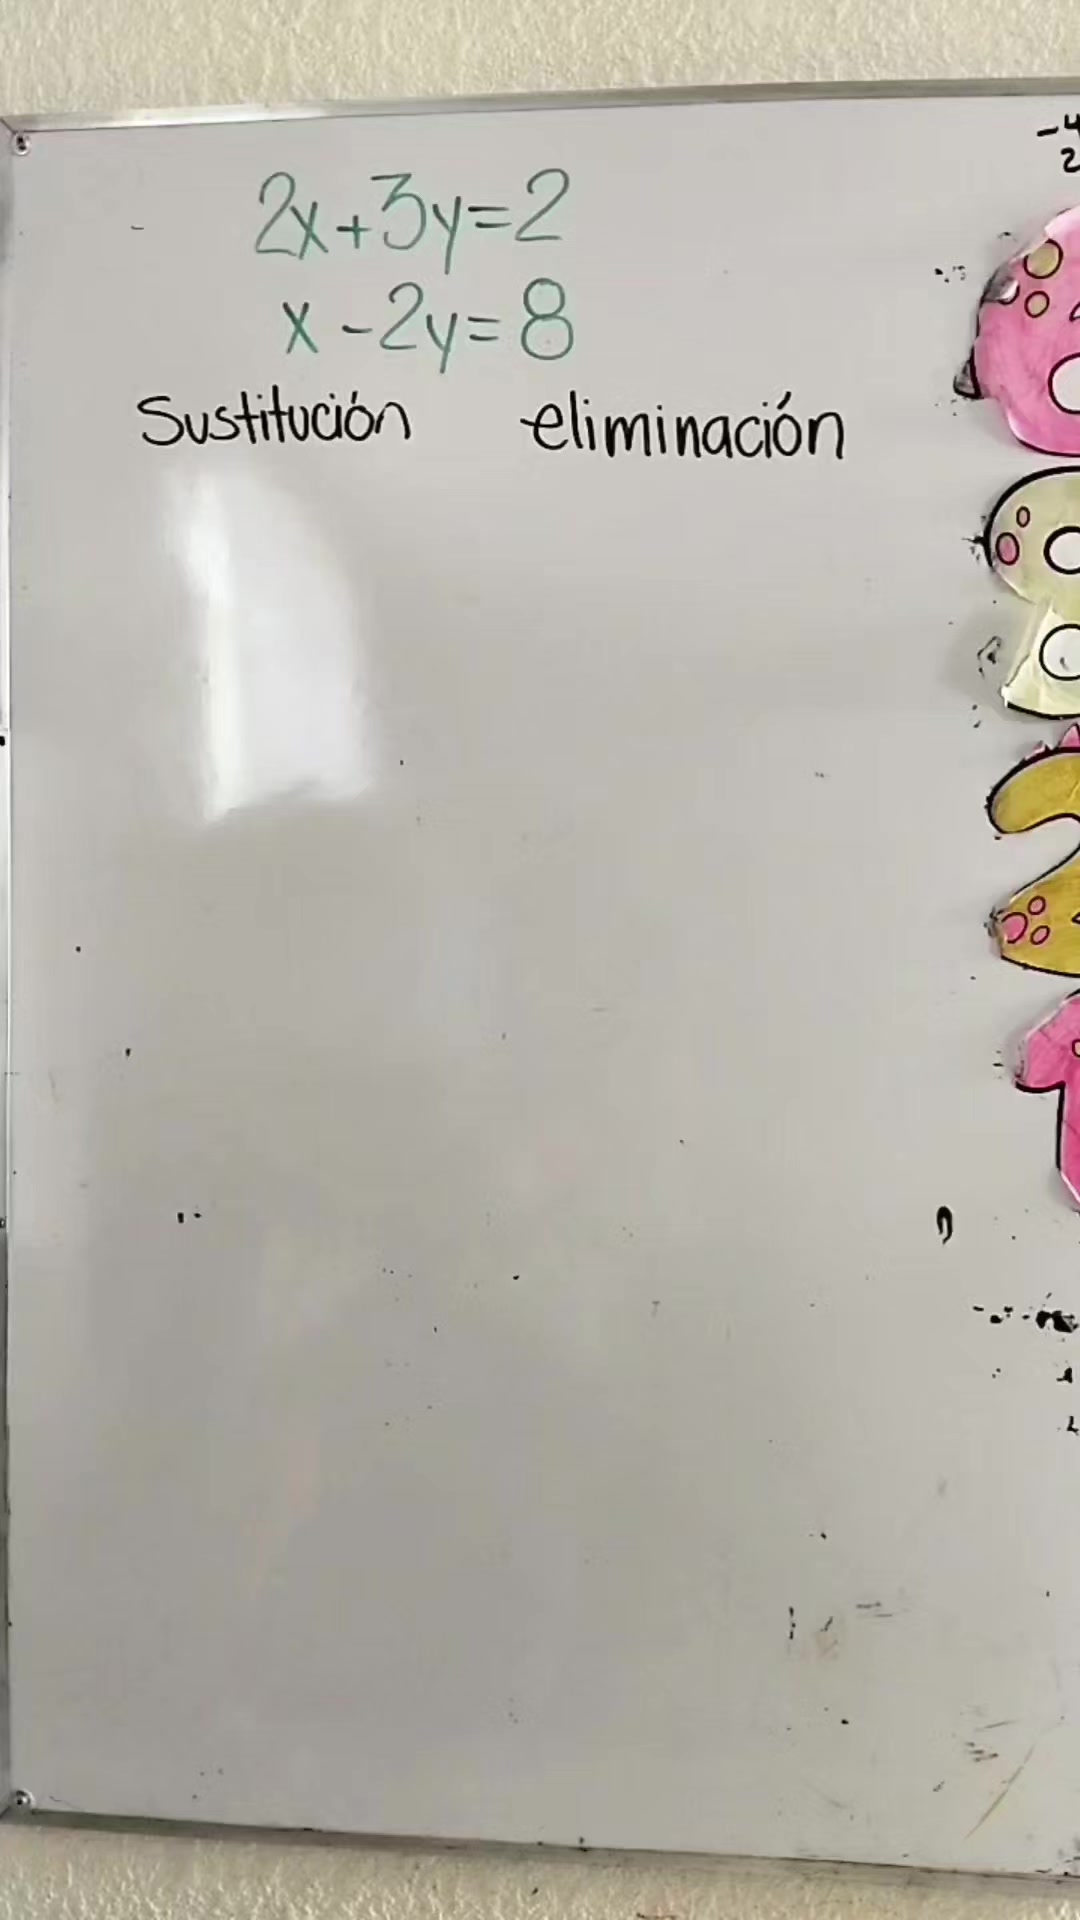 2x+3y=2
x-2y=8
Sustitución eliminación